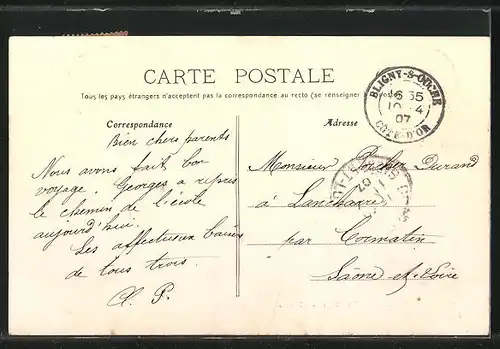 CARTE POSTALE
Tous les pays étrangers n'acceptent pas la correspondance au recto (se renseigner
BLIGNY-S-OUCHE
16 35
10 - 4
07
CÔTE-D'OR
Correspondance
Adresse
Bien chers parents
Nous avons fait bon
voyage. Georges a repris
le chemin de l'école
aujourd'hui.
Les affectueux baisers
de tous trois.
Monsieur Durand
à Lancharre
par Cormatin
Saône et Loire